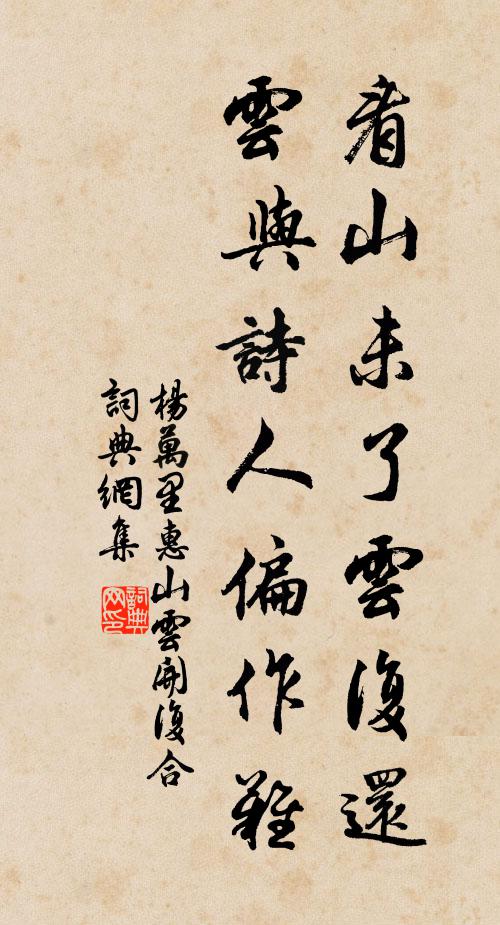 看山未了雲復還
雲與詩人偏作難
楊萬里惠山雲開復合
詞典網集
詞典网印